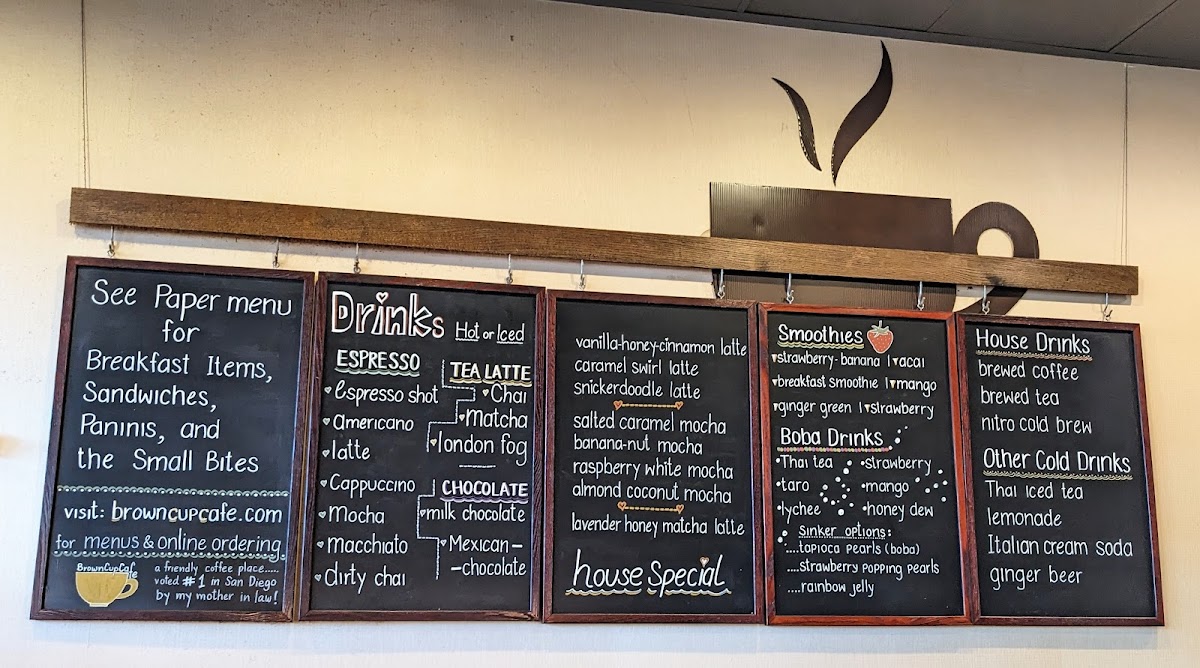 See Paper menu
for
Breakfast Items,
Sandwiches,
Paninis, and
the Small Bites
visit: browncupcafe.com
for menus & online ordering
BrownCupCafe
a friendly coffee place.....
voted #1 in San Diego
by my mother in law!
Drinks Hot or Iced
ESPRESSO
espresso shot
americano
latte
Cappuccino
Mocha
macchiato
dirty chai
TEA LATTE
Chai
Matcha
london fog
CHOCOLATE
milk chocolate
Mexican-
-chocolate
vanilla-honey-cinnamon latte
caramel swirl latte
snickerdoodle latte
salted caramel mocha
banana-nut mocha
raspberry white mocha
almond coconut mocha
lavender honey matcha latte
house Special
Smoothies
strawberry-banana | acai
breakfast smoothie | mango
ginger green | strawberry
Boba Drinks
•Thai tea •strawberry
•taro •mango
•lychee •honey dew
Sinker options:
....tapioca pearls (boba)
....strawberry popping pearls
....rainbow jelly
House Drinks
brewed coffee
brewed tea
nitro cold brew
Other Cold Drinks
Thai iced tea
lemonade
Italian cream soda
ginger beer